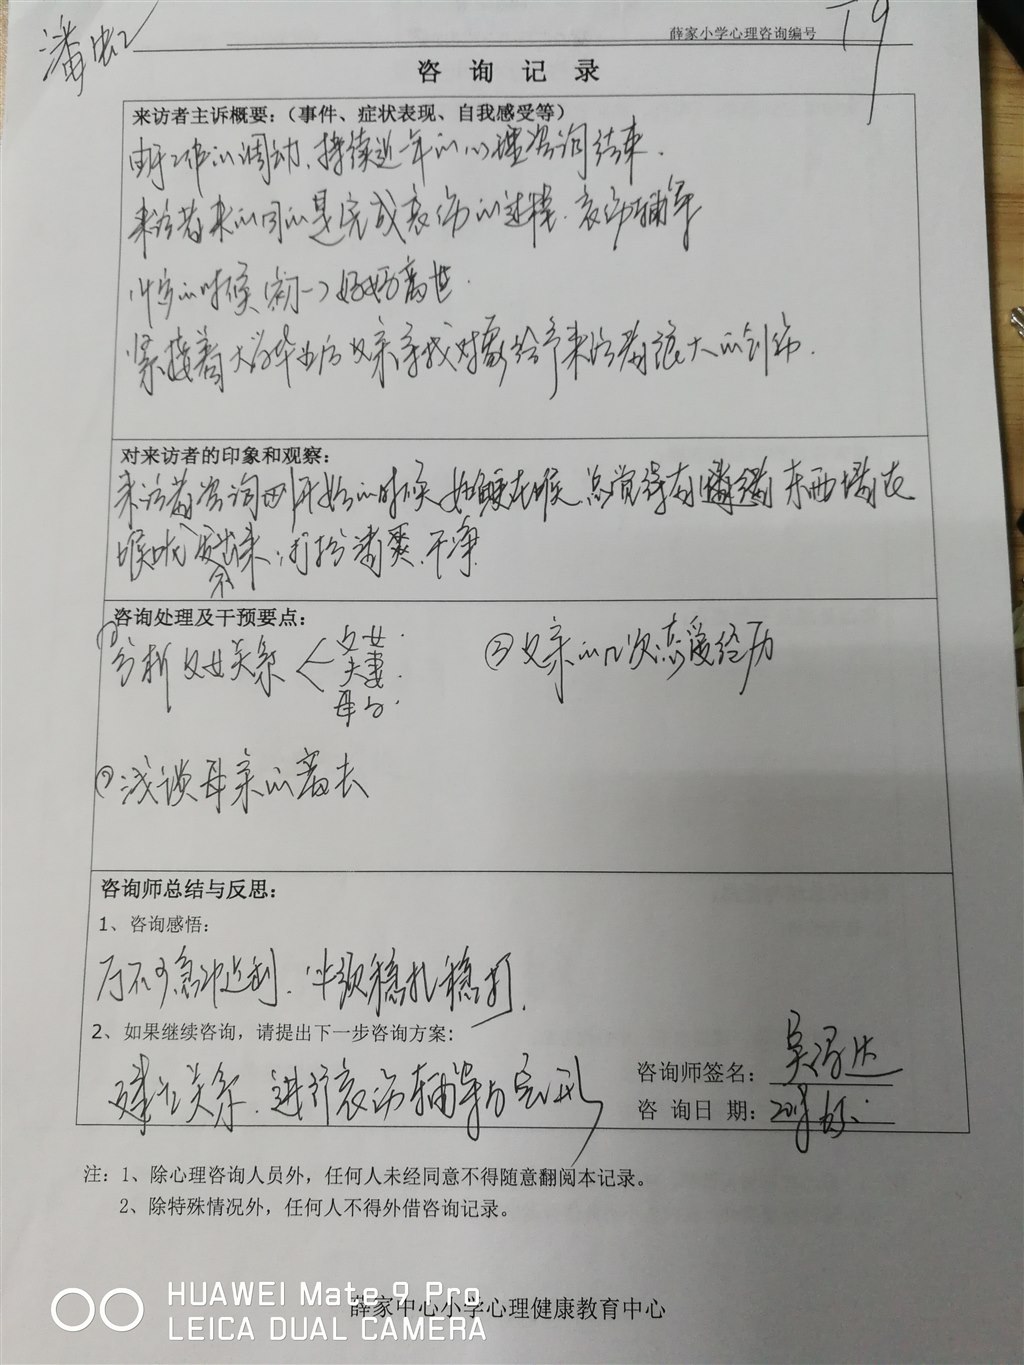 潘虹
薛家小学心理咨询编号 19
咨 询 记 录
来访者主诉概要：（事件、症状表现、自我感受等）
由于工作的调动、持续近一年的心理咨询结束．
来访者来的目的是完成哀伤的过程．哀伤辅导
的时候（初一）妈妈离世．
紧接着大学毕业后父亲寻找对象给予来访者很大的创伤．
对来访者的印象和观察：
来访者咨询刚开始的时候 如鲠在喉 总觉得有 东西堵在
喉咙 出来．打扮清爽．干净
咨询处理及干预要点：
①分析父女关系 父女．
夫妻．
母子．
③父亲的几次恋爱经历
②浅谈母亲的离去
咨询师总结与反思：
1、咨询感悟：
万不可急功近利．必须稳扎稳打．
2、如果继续咨询，请提出下一步咨询方案：
建立关系．进行哀伤辅导与
咨询师签名：
咨 询日 期：
注：1、除心理咨询人员外，任何人未经同意不得随意翻阅本记录。
2、除特殊情况外，任何人不得外借咨询记录。
薛家中心小学心理健康教育中心
HUAWEI Mate 9 Pro
LEICA DUAL CAMERA